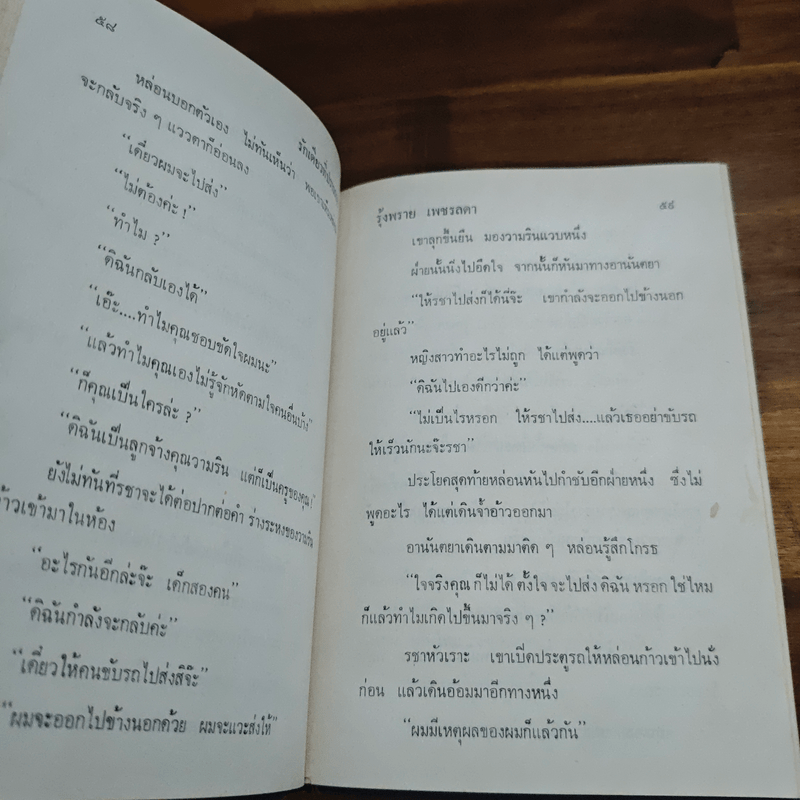 ๕๘
รักเดียวที่
หล่อนบอกตัวเอง ไม่ทันเห็นว่า พอ
จะกลับจริง ๆ แววตาก็อ่อนลง
“เดี๋ยวผมจะไปส่ง”
“ไม่ต้องค่ะ !
“ทำไม ?
“ดิฉันกลับเองได้”
“เอ๊ะ....ทำไมคุณชอบขัดใจผมนะ”
“แล้วทำไมคุณเองไม่รู้จักหัดตามใจคนอื่นบ้าง”
“ก็คุณเป็นใครล่ะ ?”
“ดิฉันเป็นลูกจ้างคุณวามริน แต่ก็เป็นครูของคุณ !
ยังไม่ทันที่รชาจะได้ต่อปากต่อคำ ร่างระหงของวามริน
ก้าวเข้ามาในห้อง
“อะไรกันอีกล่ะจ๊ะ เด็กสองคน”
“ดิฉันกำลังจะกลับค่ะ”
“เดี๋ยวให้คนขับรถไปส่งสิจ๊ะ”
“ผมจะออกไปข้างนอกด้วย ผมจะแวะส่งให้”
รุ้งพราย เพชรลดา
๕๙
เขาลุกขึ้นยืน มองวามรินแวบหนึ่ง
ฝ่ายนั้นนิ่งไปอึดใจ จากนั้นก็หันมาทางอานันตยา
“ให้รชาไปส่งก็ได้นี่จ๊ะ เขากำลังจะออกไปข้างนอก
อยู่แล้ว”
หญิงสาวทำอะไรไม่ถูก ได้แต่พูดว่า
“ดิฉันไปเองดีกว่าค่ะ”
“ไม่เป็นไรหรอก ให้รชาไปส่ง....แล้วเธออย่าขับรถ
ให้เร็วนักนะจ๊ะรชา”
ประโยคสุดท้ายหล่อนหันไปกำชับอีกฝ่ายหนึ่ง ซึ่งไม่
พูดอะไร ได้แต่เดินจ้ำอ้าวออกมา
อานันตยาเดินตามมาติด ๆ หล่อนรู้สึกโกรธ
“ใจจริงคุณ ก็ไม่ได้ ตั้งใจ จะไปส่ง ดิฉัน หรอก ใช่ไหม
ก็แล้วทำไมเกิดไปขึ้นมาจริง ๆ ?”
รชาหัวเราะ เขาเปิดประตูรถให้หล่อนก้าวเข้าไปนั่ง
ก่อน แล้วเดินอ้อมมาอีกทางหนึ่ง
“ผมมีเหตุผลของผมก็แล้วกัน”